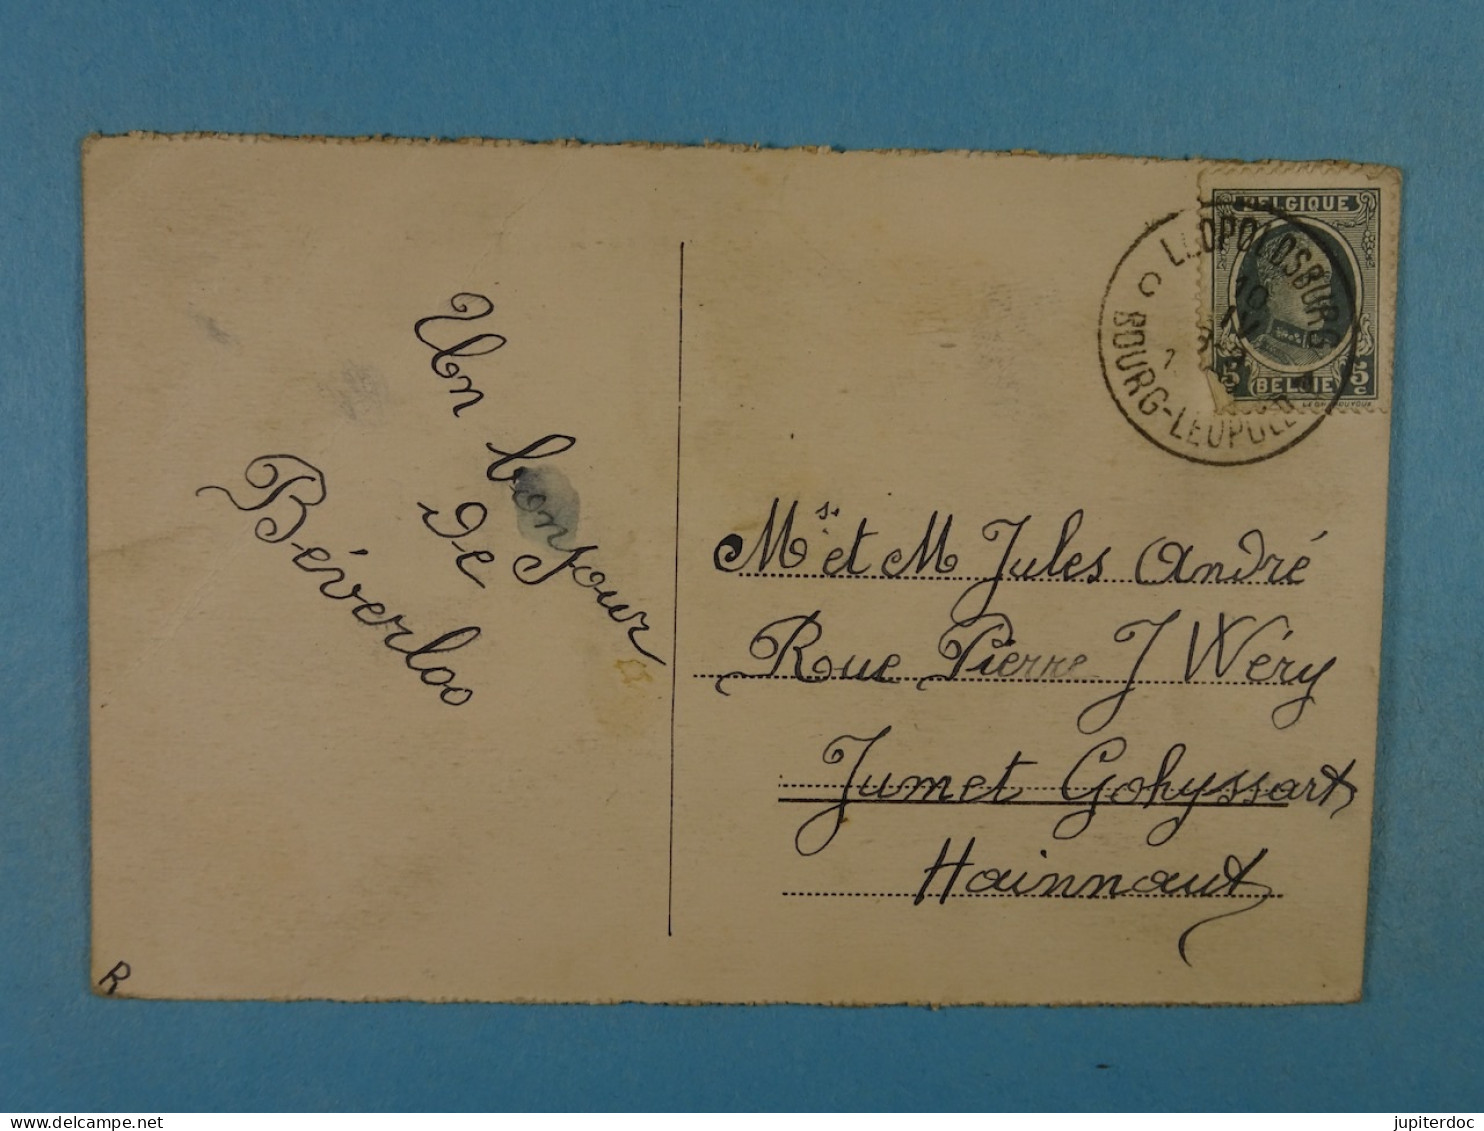 Un bonjour
de
Béverloo
BELGIQUE
5c BELGIË 5c
LEOPOLDSBURG
10
IV
BOURG-LEOPOLD
Msr et M Jules André
Rue Pierre J Wéry
Jumet Gohyssart
Hainnaut
R
delcampe.net
jupiterdoc